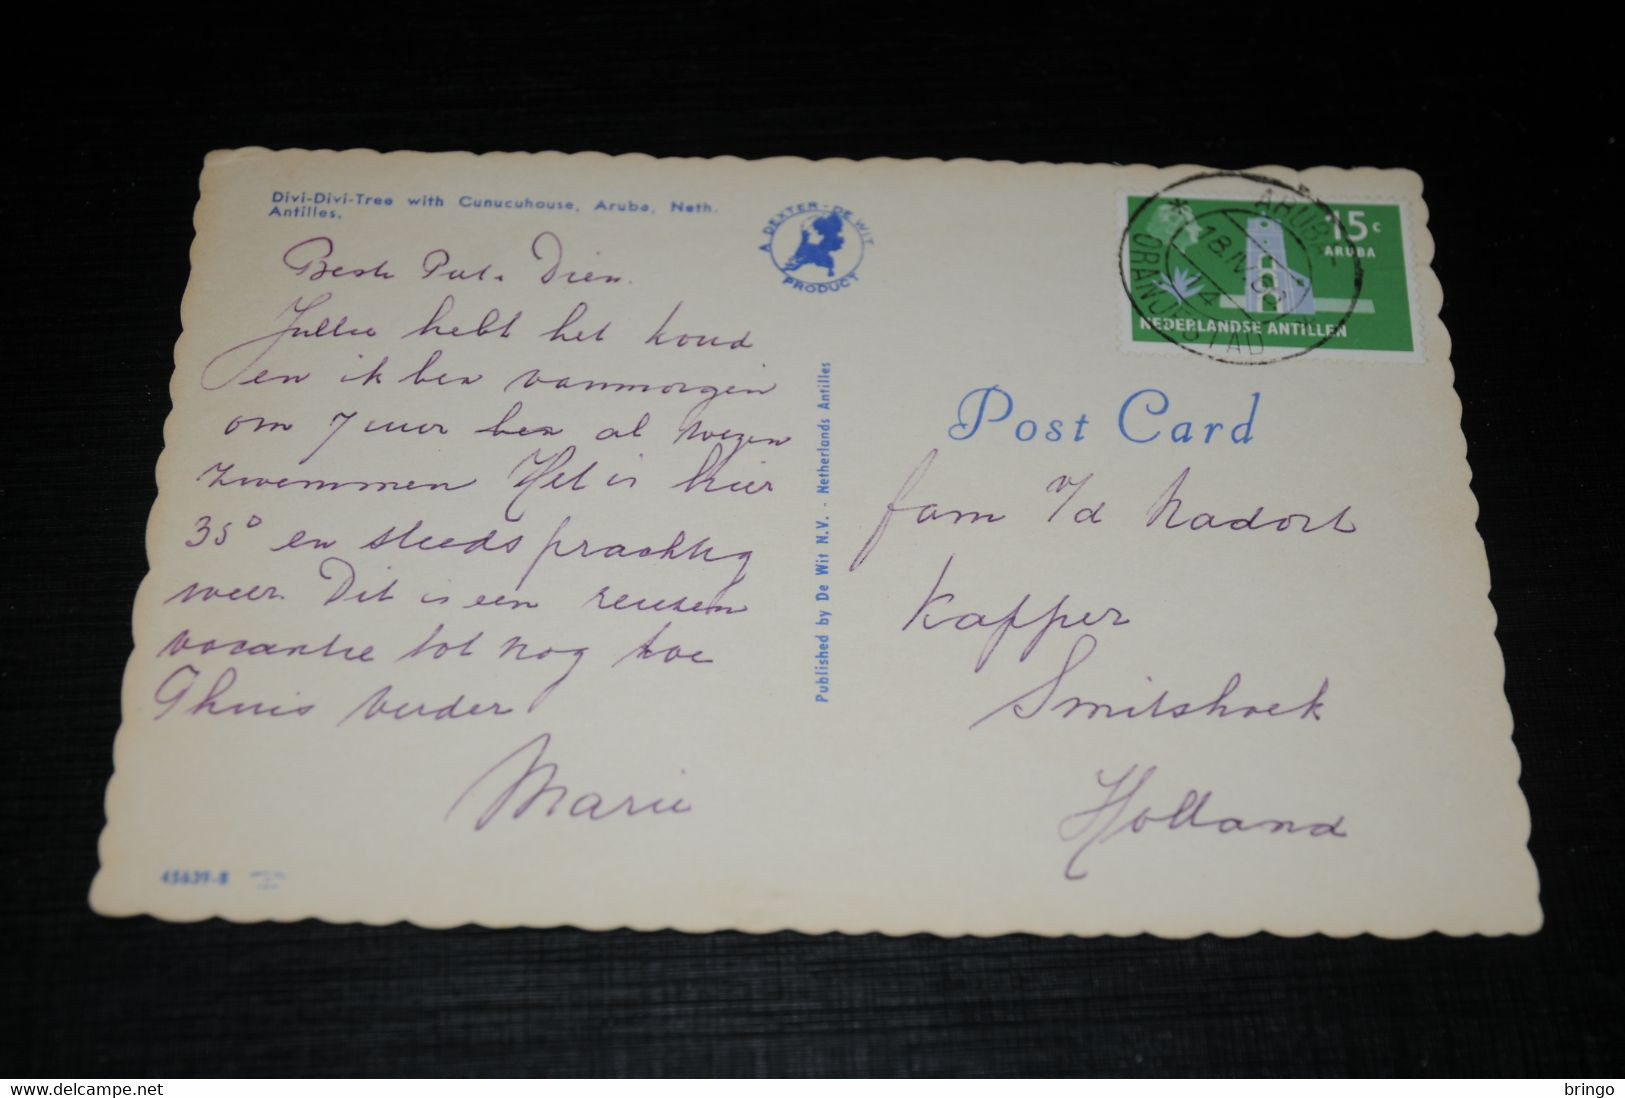 Divi-Divi-Tree with Cunucuhouse, Aruba, Neth.
Antilles.
A DEXTER-DE WIT
PRODUCT
Beste Piet. Dien.
Jullie hebt het koud
en ik ben vanmorgen
om 7 uur ben al wezen
zwemmen Het is hier
35° en steeds prachtig
weer. Dit is een reuzen
vacantie tot nog toe
Thuis verder
Marie
45639-B
Published by De Wit N.V. - Netherlands Antilles
15c
ARUBA
NEDERLANDSE ANTILLEN
ARUBA
18.IV.61
4
ORANJESTAD
Post Card
fam v/d Nadort
Kapper
Smitshoek
Holland
www.delcampe.net
bringo